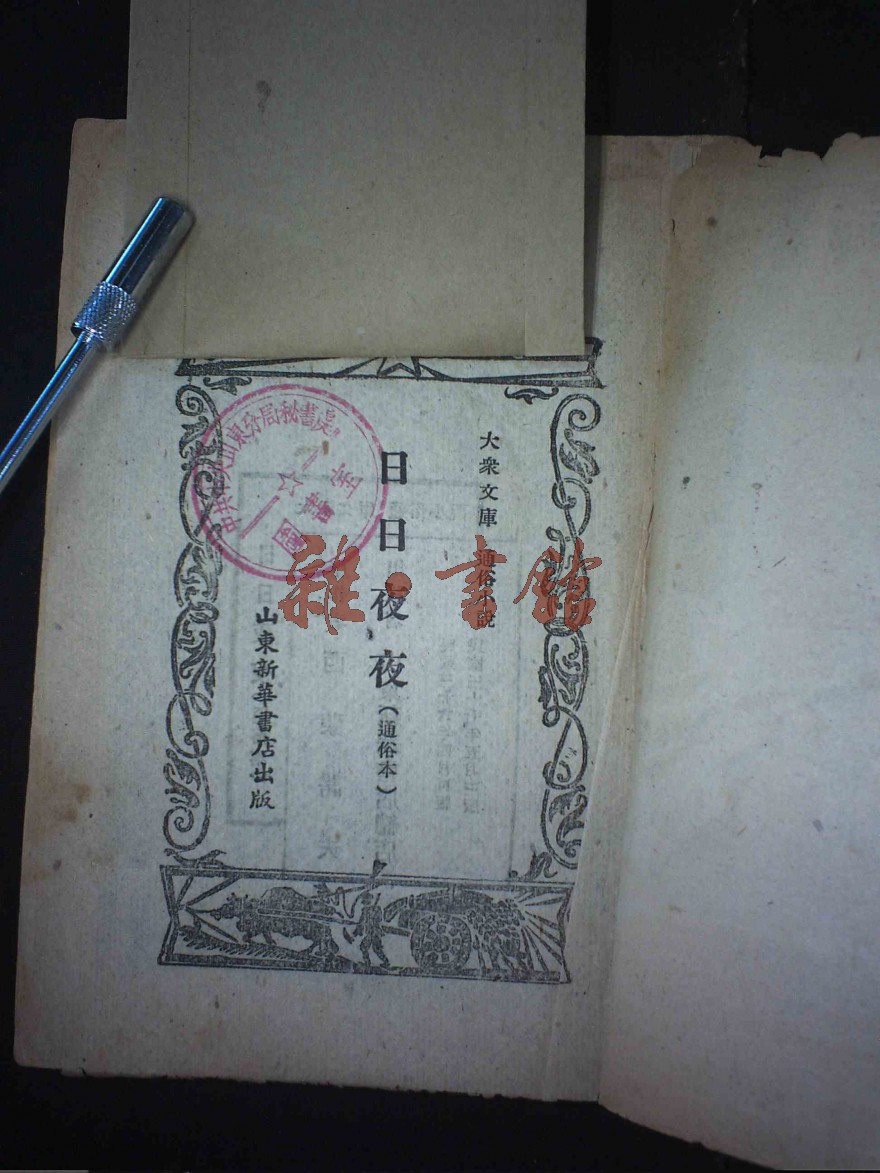 大衆文庫 通俗小說
日日夜夜(通俗本)
山東新華書店出版
中共中央山東分局秘書處
圖書室
雜·書館